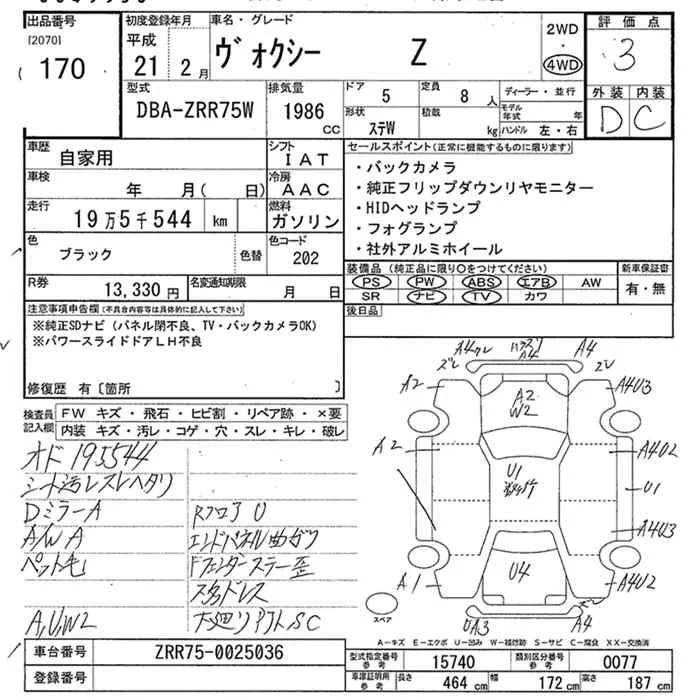 出品番号
[2070]
170
初度登録年月
平成
21年 2月
車名・グレード
ヴォクシー Z
2WD
・
4WD
評価点
3
外装 内装
D C
型式
DBA-ZRR75W
排気量
1986
CC
ドア
5
定員
8人
形状
ステW
積載
kg
ディーラー・並行
モデル年式 年
ハンドル 左・右
車歴
自家用
シフト
IAT
車検
年 月( 日)
冷房
AAC
走行
19万5千544 km
燃料
ガソリン
色
ブラック
色替
色コード
202
R券
13,330円
名変通知期限
月 日
セールスポイント(正常に機能するものに限ります)
・バックカメラ
・純正フリップダウンリヤモニター
・HIDヘッドランプ
・フォグランプ
・社外アルミホイール
装備品 (純正品に限り○をつけてください)
PS PW ABS エアB AW
SR ナビ TV カワ
新車保証書
有・無
後日品
注意事項申告欄(不具合内容等は具体的に記入して下さい)
※純正SDナビ(パネル閉不良、TV・バックカメラOK)
※パワースライドドアLH不良
修復歴 有〔箇所 〕
検査員記入欄
FW キズ・飛石・ヒビ割・リペア跡・×要
内装 キズ・汚レ・コゲ・穴・スレ・キレ・破レ
オド 195544
シート汚レスレヘタリ
DミラーA
A/W A
ペット毛
A,U,W2
Rフロア U
エンドパネル曲ガリ
Fフェンダーステー歪
スタッドレス
下廻リアトSC
A4ワレ
ズレ
A4
A4
ズレ
A2
A2
W2
A4U3
A2
A4U2
U1
U1
A4U3
A1
U4
A4U2
ズレ
UA3
A4
スペア
A-キズ E-エクボ U-凹み W-補修跡 S-サビ C-腐食 XX-交換済
車台番号
ZRR75-0025036
登録番号
型式指定番号 参考
15740
類別区分番号 参考
0077
車庫証明用 参考
長さ 464 cm
幅 172 cm
高さ 187 cm